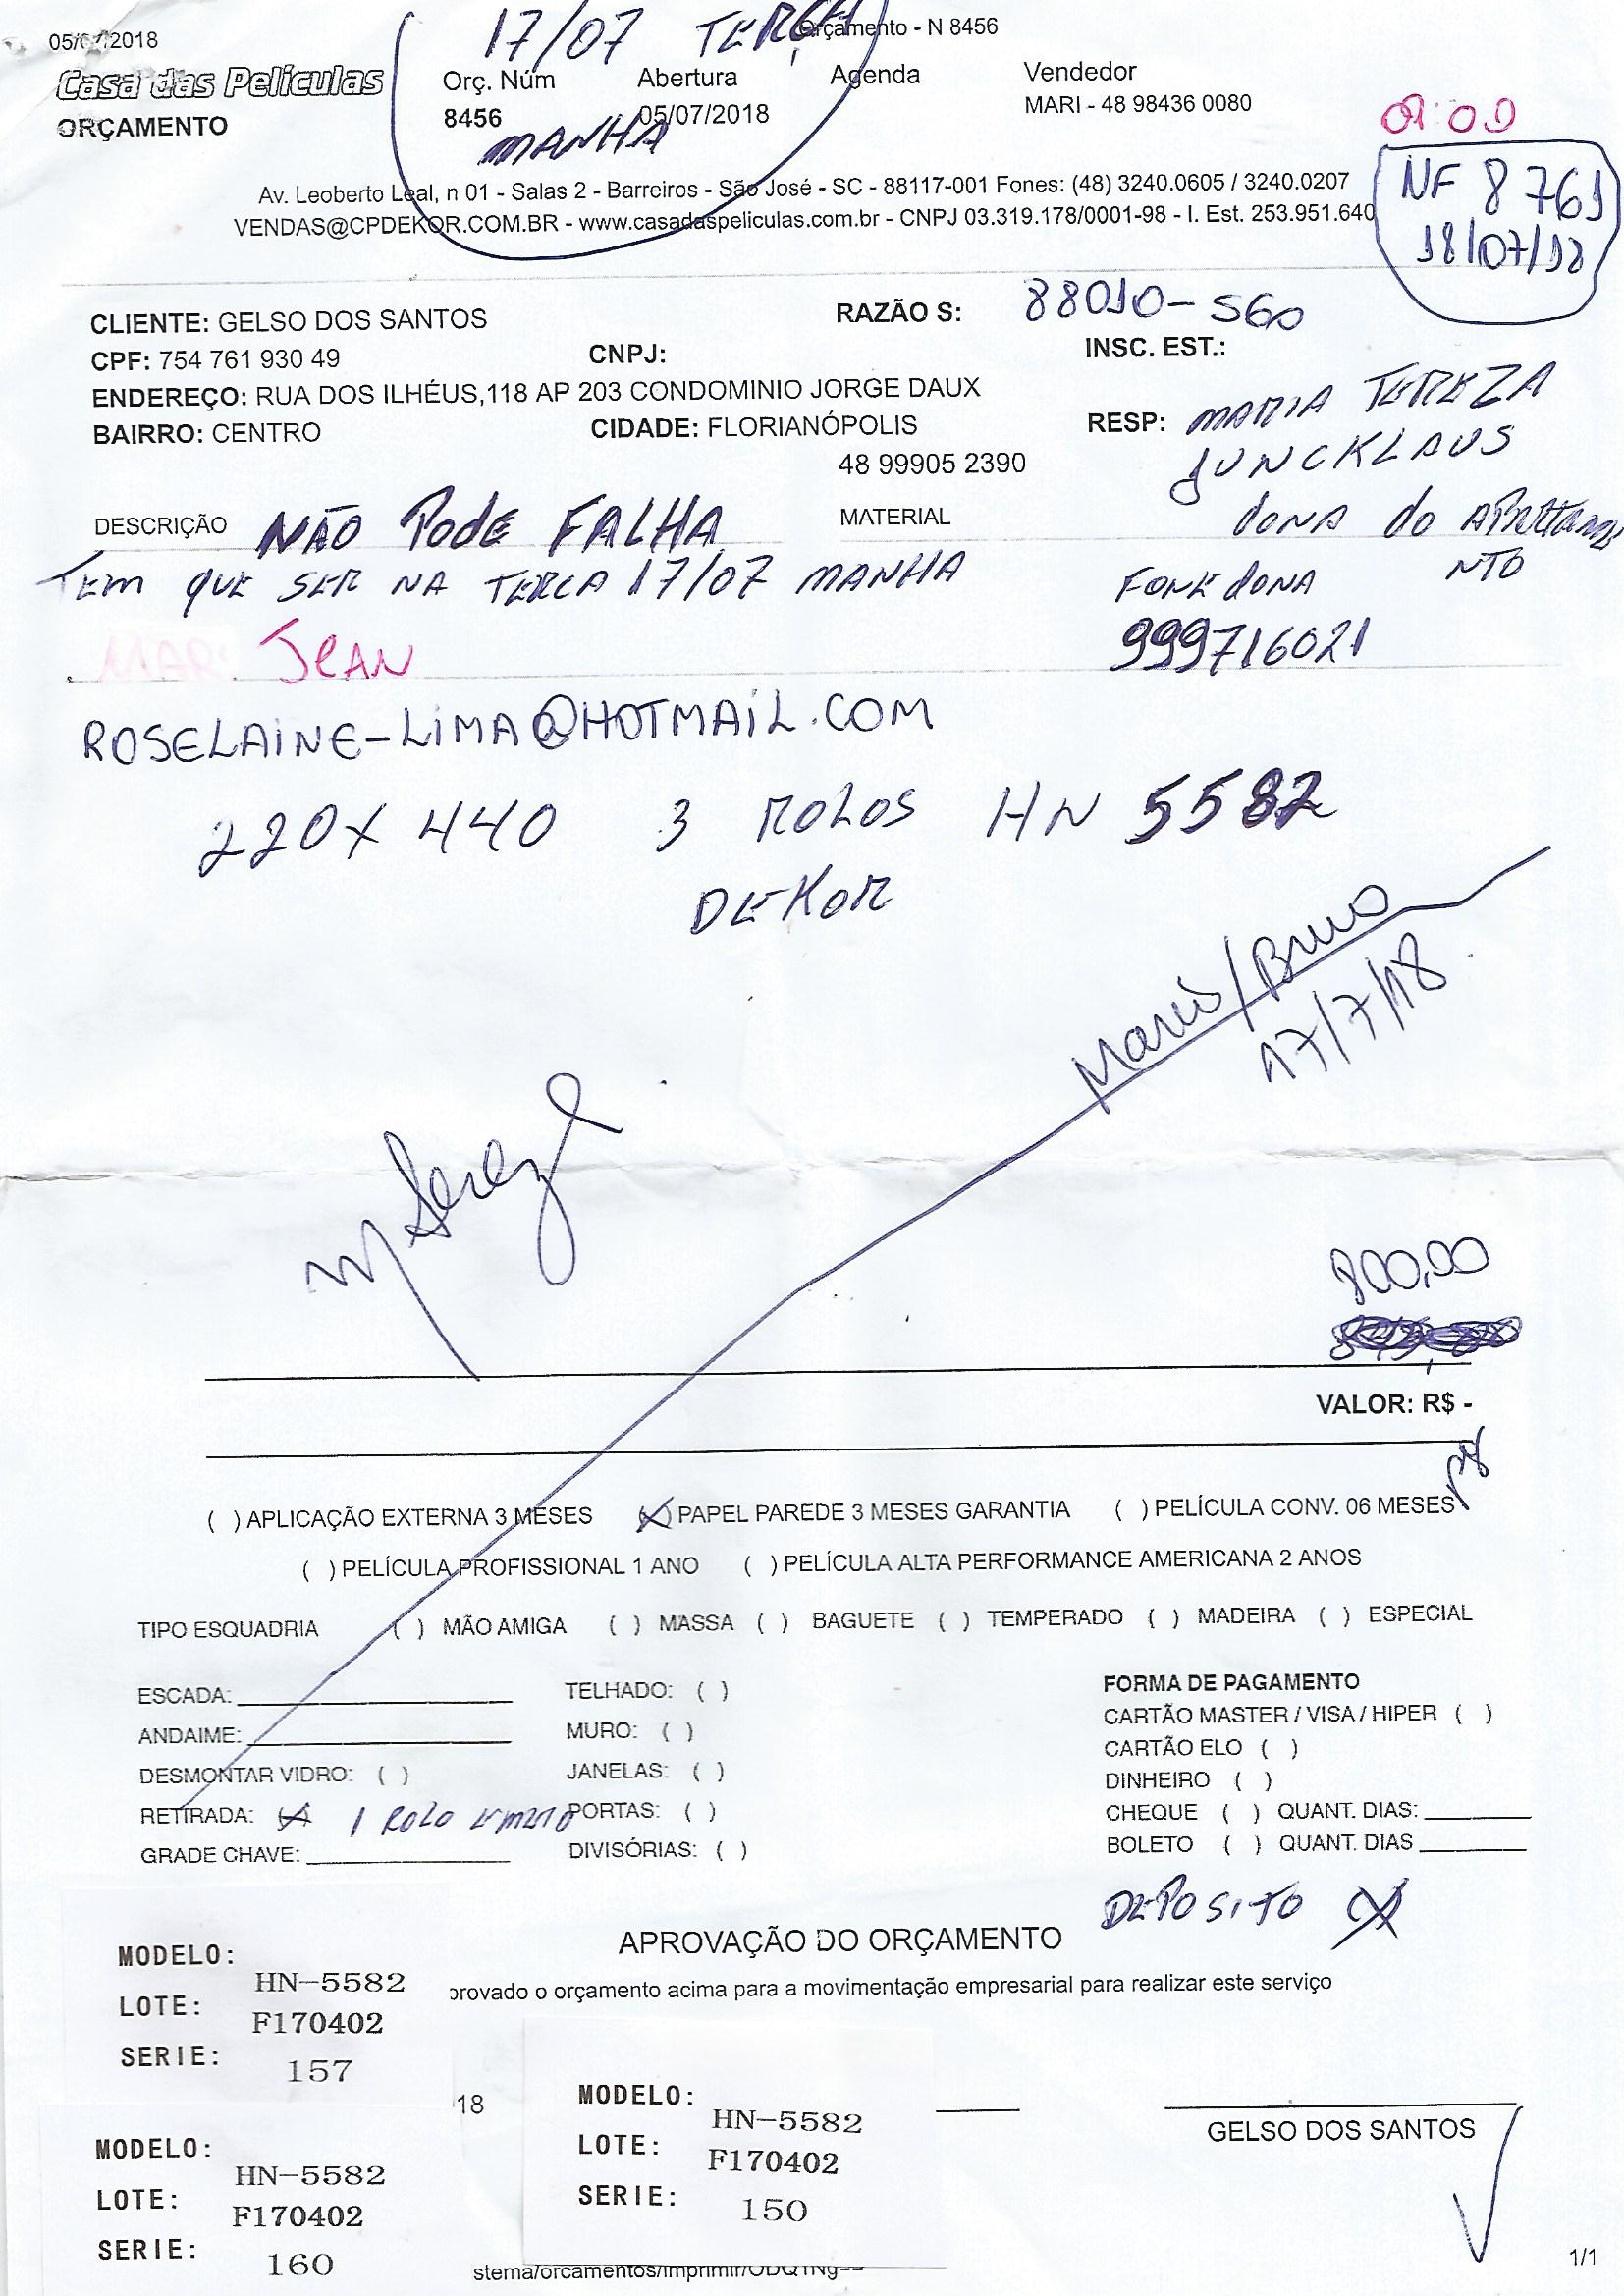 17/07 TERÇA
05/07/2018
Orçamento - N 8456
Casa das Películas
ORÇAMENTO
Orç. Núm Abertura Agenda Vendedor
8456 05/07/2018 MARI - 48 98436 0080
MANHA
09:00
NF 8761
18/07/18
Av. Leoberto Leal, n 01 - Salas 2 - Barreiros - São José - SC - 88117-001 Fones: (48) 3240.0605 / 3240.0207
VENDAS@CPDEKOR.COM.BR - www.casadaspeliculas.com.br - CNPJ 03.319.178/0001-98 - I. Est. 253.951.640
CLIENTE: GELSO DOS SANTOS RAZÃO S: 88010-560
CPF: 754 761 930 49 CNPJ: INSC. EST.:
ENDEREÇO: RUA DOS ILHÉUS,118 AP 203 CONDOMINIO JORGE DAUX
BAIRRO: CENTRO CIDADE: FLORIANÓPOLIS RESP: MARIA TEREZA
JUNCKLAUS
48 99905 2390
DESCRIÇÃO NÃO PODE FALHA MATERIAL DONA DO APARTAME
NTO
TEM QUE SER NA TERCA 17/07 MANHA FONE DONA
MARI JEAN 999716021
ROSELAINE-LIMA@HOTMAIL.COM
220X440 3 ROLOS HN 5582
DEKOR
Mario/Bruno
17/7/18
M Tereza
800,00
VALOR: R$ -
( ) APLICAÇÃO EXTERNA 3 MESES (X) PAPEL PAREDE 3 MESES GARANTIA ( ) PELÍCULA CONV. 06 MESES
( ) PELÍCULA PROFISSIONAL 1 ANO ( ) PELÍCULA ALTA PERFORMANCE AMERICANA 2 ANOS
TIPO ESQUADRIA ( ) MÃO AMIGA ( ) MASSA ( ) BAGUETE ( ) TEMPERADO ( ) MADEIRA ( ) ESPECIAL
ESCADA: TELHADO: ( )
ANDAIME: MURO: ( )
DESMONTAR VIDRO: ( ) JANELAS: ( )
RETIRADA: (X) 1 ROLO PORTAS: ( )
GRADE CHAVE: DIVISÓRIAS: ( )
FORMA DE PAGAMENTO
CARTÃO MASTER / VISA / HIPER ( )
CARTÃO ELO ( )
DINHEIRO ( )
CHEQUE ( ) QUANT. DIAS:
BOLETO ( ) QUANT. DIAS
DEPOSITO (X)
APROVAÇÃO DO ORÇAMENTO
provado o orçamento acima para a movimentação empresarial para realizar este serviço
MODELO: HN-5582
LOTE: F170402
SERIE: 157
18
MODELO: HN-5582
LOTE: F170402
SERIE: 150
GELSO DOS SANTOS
MODELO: HN-5582
LOTE: F170402
SERIE: 160
stema/orcamentos/imprimir/ODQ1Ng==
1/1